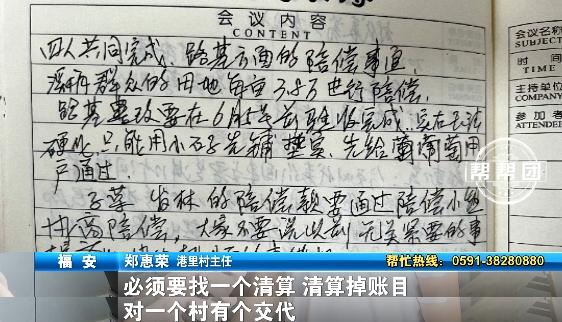 会议内容
CONTENT
四人共同完成、路基方面的陪偿事宜
群众的用地每亩3.8万进行陪偿.
路基 要在6月5号前验收完成.实在无法
硬化 只能用小石子先铺垫 、先给葡萄用
户通过.
的陪偿款要通过陪偿小组
协商陪偿, 大家不要说
会议名称
SUBJECT
时 间
TIME
主持单位
COMPANY
参加者
ATTENDE
帮帮团
福安 郑惠荣 港里村主任 帮忙热线：0591-38280880
必须要找一个清算 清算掉账目
对一个村有个交代